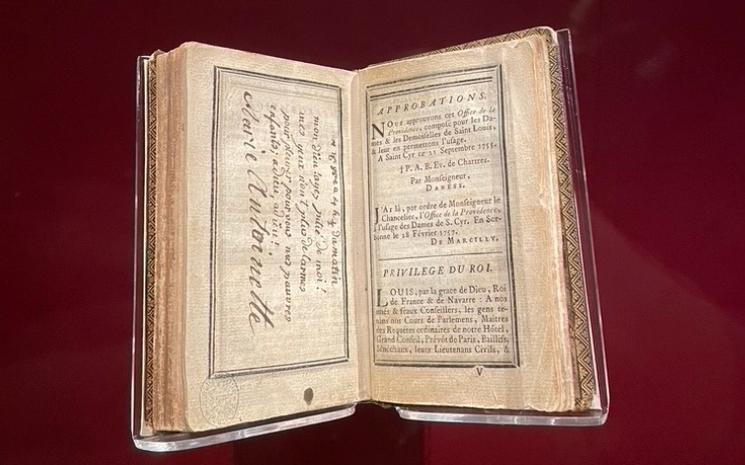 du matin
mon dieu ayez pitié de moi !
mes yeux n'ont plus de larmes
pour pleurer pour vous mes pauvres
enfants ; adieu, adieu !
Marie Antoinette
APPROBATIONS.
NOUS approuvons cet Office de la
Providence, composé pour les Da-
mes & les Demoiselles de Saint Louis,
& leur en permettons l'usage.
A Saint Cyr ce 21 Septembre 1755.
† P. A. B. Ev. de Chartres.
Par Monseigneur,
DANESE.
J'AI lû, par ordre de Monseigneur le
Chancelier, l'Office de la Providence,
à l'usage des Dames de S. Cyr. En Sor-
bonne le 28 Février 1757.
DE MARCILLY.
PRIVILEGE DU ROI.
LOUIS, par la grace de Dieu, Roi
de France & de Navarre : A nos
amés & feaux Conseillers, les gens te-
nans nos Cours de Parlemens, Maitres
des Requêtes ordinaires de notre Hôtel,
Grand Conseil, Prévôt de Paris, Baillifs,
Sénéchaux, leurs Lieutenans Civils, &
V